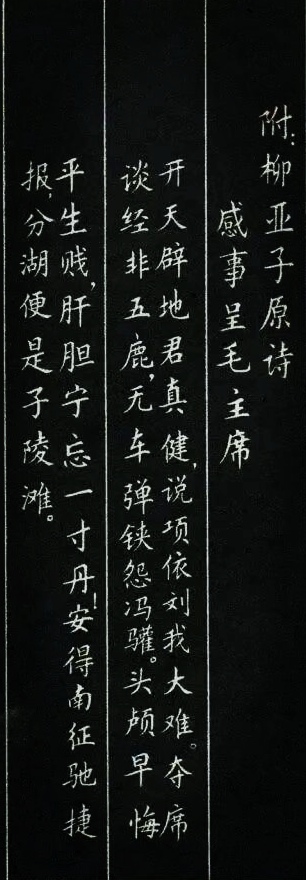 附：柳亚子原诗
感事呈毛主席
开天辟地君真健，说项依刘我大难。夺席
谈经非五鹿，无车弹铗怨冯驩。头颅早悔
平生贱，肝胆宁忘一寸丹！安得南征驰捷
报，分湖便是子陵滩。